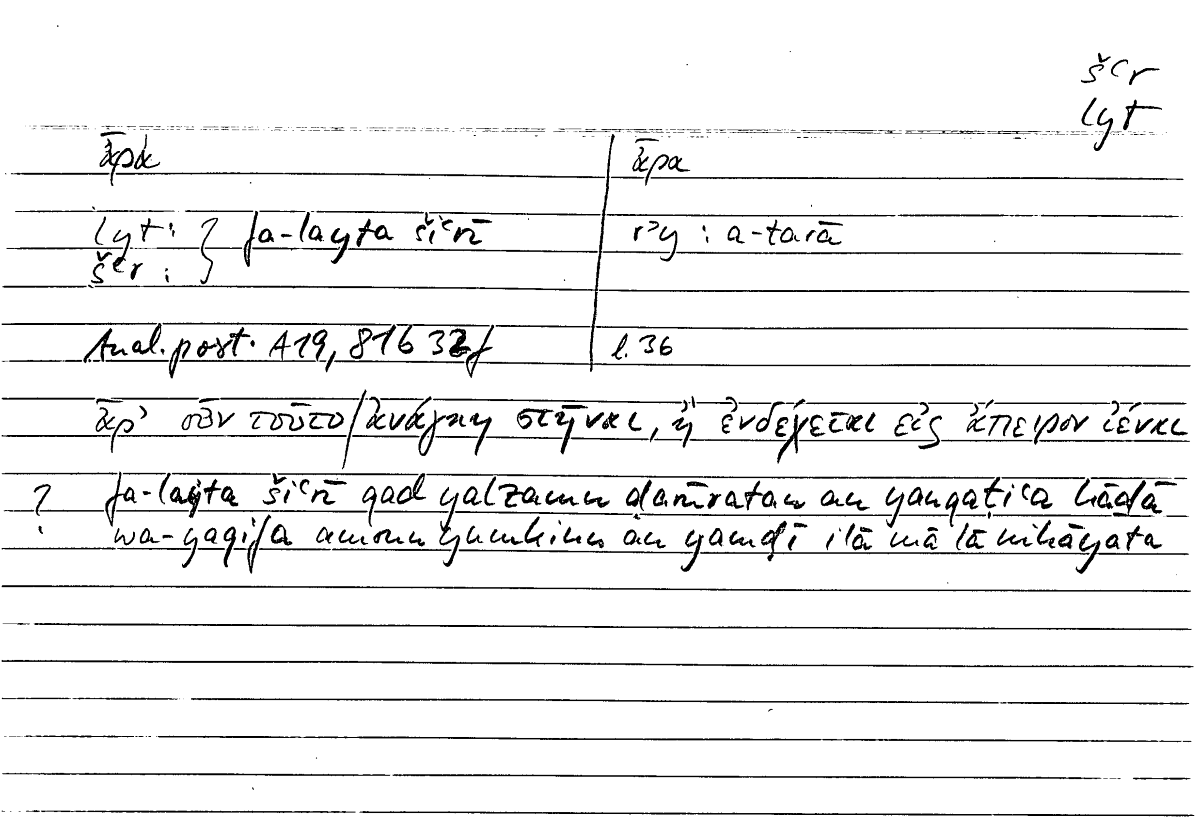 šʿr
lyt
ἆρα
ἆρα
lyt: } fa-layta šiʿrī
rʾy : a-tarā
šʿr :
Anal. post. A19, 81b 32f
l. 36
ἆρ’ οὖν τοῦτο/ἀνάγκη στῆναι, ἢ ἐνδέχεται εἰς ἄπειρον ἰέναι
? fa-layta šiʿrī qad yalzamu ḍarūratan an yanqaṭiʿa hāḏā
wa-yaqifa am yumkinu an yamḍī ilā mā lā nihāyata